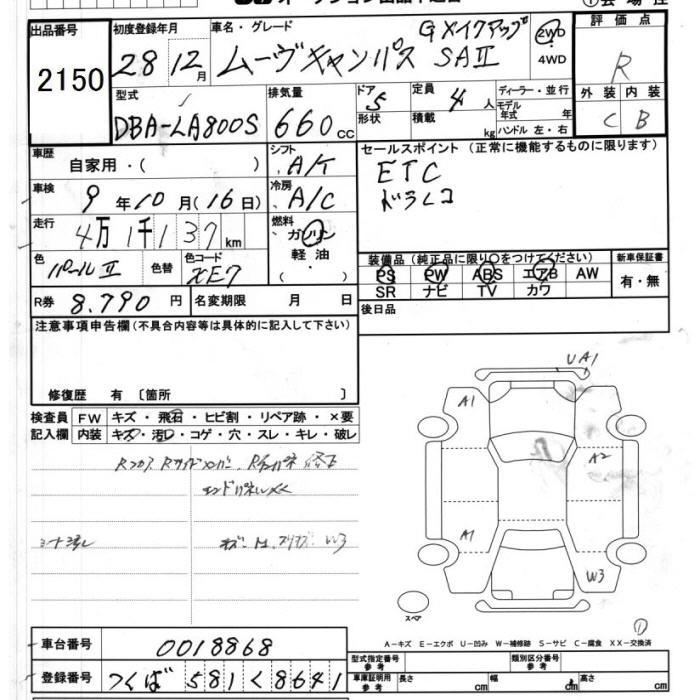 出品番号 2150
初度登録年月 28 12月
車名・グレード ムーヴキャンバス GメイクアップSAⅡ
2WD
4WD
評価点 R
外装 内装
C B
型式 DBA-LA800S
排気量 660cc
ドア 5
形状
定員 4人
積載 kg
ディーラー・並行
モデル年式 年
ハンドル 左・右
車歴 自家用・( )
シフト A/T
セールスポイント(正常に機能するものに限ります)
ETC
ドラレコ
車検 9年10月(16日)
冷房 A/C
走行 4万1千137km
燃料 ガソリン
軽油・
( )
色 パールⅡ 色替 色コード XE7
装備品(純正品に限り○をつけてください)
新車保証書
PS PW ABS エアB AW
有・無
SR ナビ TV カワ
R券 8.790円 名変期限 月 日
後日品
注意事項申告欄(不具合内容等は具体的に記入して下さい)
修復歴 有 〔箇所 〕
検査員記入欄
FW キズ・飛石・ヒビ割・リペア跡・×要
内装 キズ・汚レ・コゲ・穴・スレ・キレ・破レ
UA1
A1
A2
A1
W3
スペア
①
A-キズ E-エクボ U-凹み W-補修跡 S-サビ C-腐食 XX-交換済
車台番号 0018868
登録番号 つくば581く8641
型式指定番号 参考
類別区分番号 参考
車庫証明用 参考 長さ cm 幅 cm 高さ cm